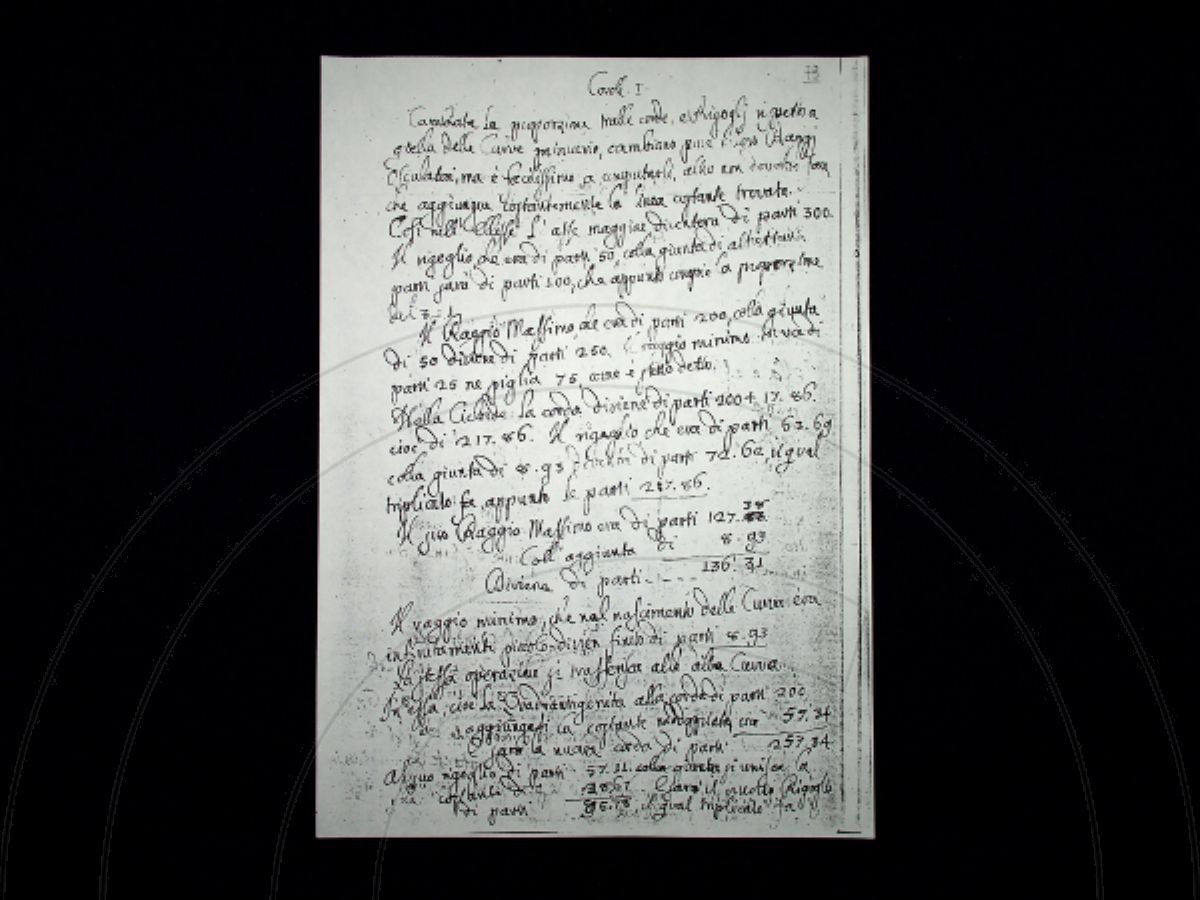 73
Coroll. I.
Cambiata la proporzione tralle corde, e rigogli rispetto a
quella delle Curve primarie, cambiano pure i loro Raggi
Osculatori, ma è facilissimo a computarli, altro non dovendo farsi
che aggiungervi costantemente la linea costante trovata.
Così nell' Ellisse l' asse maggiore diventerà di parti 300.
Il rigoglio, che era di parti 50, colla giunta di altrettante
parti sarà di parti 100, che appunto
Il Raggio Massimo, che era di parti 200, colla giunta
di 50 diviene di parti 250. Il raggio minimo di
parti 25 ne piglia 75, come è stato detto.
Nella Cicloide la corda diviene di parti 200 + 17. 86.
cioè di 217. 86. Il rigoglio che era di parti 63. 69
colla giunta di 8. 93 diventa di parti 72. 62, il qual
triplicato fa appunto le parti 217. 86.
Il suo Raggio Massimo era di parti 127. 38
Coll' aggiunta di 8. 93
Diviene di parti - - - - 136. 31
Il raggio minimo, che nel nascimento della Curva era
infinitamente piccolo divien finito di parti 8. 93
La stessa operazione si trasferisca alle altre Curve
In essa, cioè la alla corda di parti 200
aggiungasi la costante 57. 34
E sarà la nuova corda di parti 257. 34
Al suo rigoglio di parti 57. 11. si unisca la
costante di 28. 67. E sarà il nuovo Rigoglio
di parti 85. 78, il qual triplicato fa